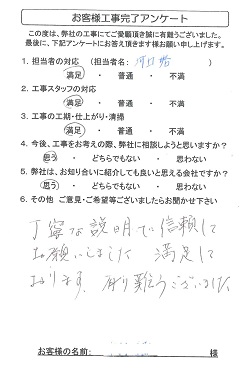 お客様工事完了アンケート
この度は、弊社の工事にてご愛顧頂き誠に有難うございました。
最後に、下記アンケートにお答え頂きます様お願い申し上げます。
1. 担当者の対応 (担当者名: 河口 )
満足 ・ 普通 ・ 不満
2. 工事スタッフの対応
満足 ・ 普通 ・ 不満
3. 工事の工期・仕上がり・清掃
満足 ・ 普通 ・ 不満
4. 今後、工事をお考えの際、弊社に相談しようと思いますか?
思う ・ どちらでもない ・ 思わない
5. 弊社は、お知り合いに紹介しても良いと思える会社ですか?
思う ・ どちらでもない ・ 思わない
6. その他 ご意見・ご希望等ございましたらお聞かせ下さい
丁寧な説明で信頼して
お願いしました 満足して
おります。有り難うございました
お客様の名前: 様